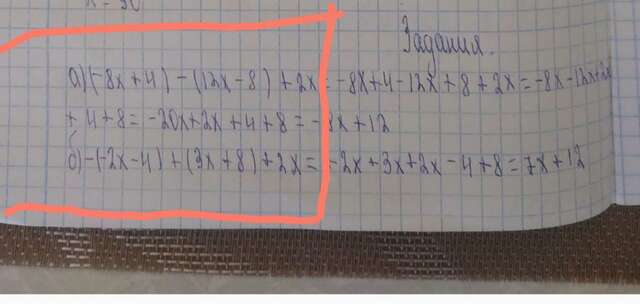 Задания.
а)(-8x+4)-(12x-8)+2x=-8x+4-12x+8+2x=-8x-12x+2x
+4+8=-20x+2x+4+8=-8x+12
б)-(-2x-4)+(3x+8)+2x=-2x+3x+2x-4+8=7x+12